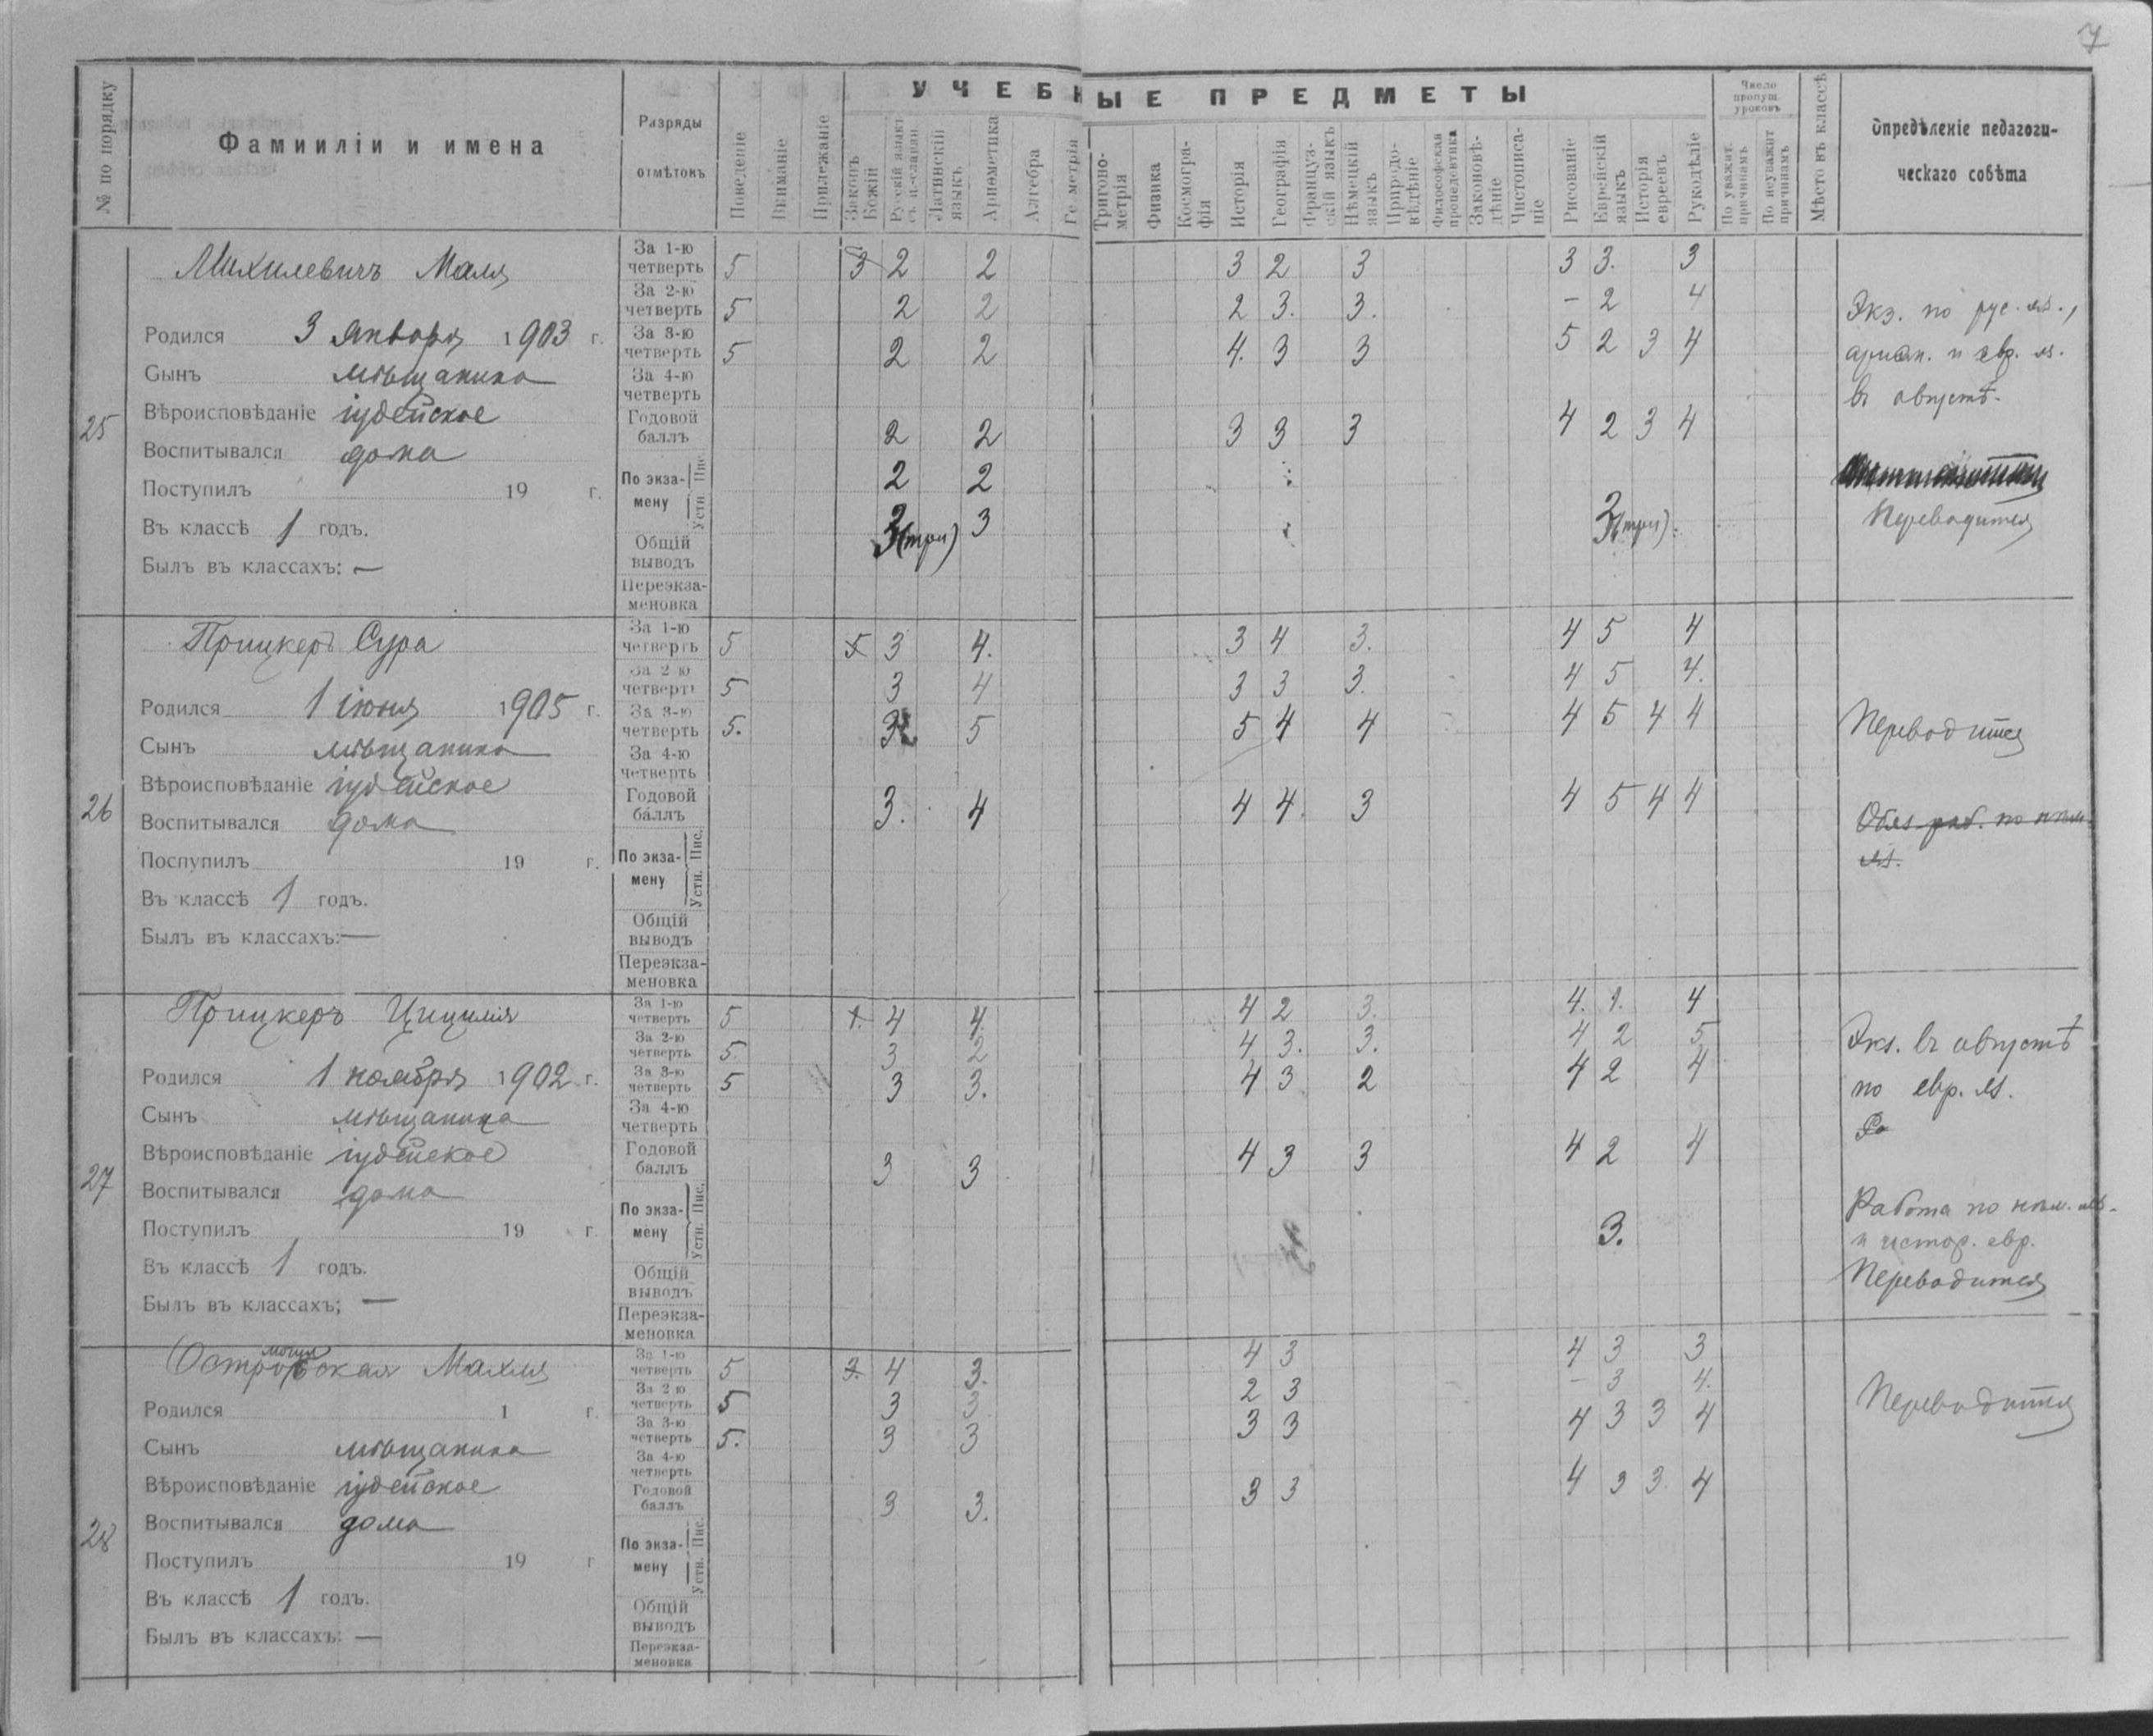 7
УЧЕБНЫЕ ПРЕДМЕТЫ
№ по порядку
Фамииліи и имена
Разряды
отмѣтокъ
Поведеніе
Вниманіе
Прилежаніе
Законъ Божій
Русскій языкъ
Латинскій языкъ
Ариѳметика
Алгебра
Тригоно-
метрія
Физика
Космогра-
фія
Исторія
Географія
Француз-
скій языкъ
Нѣмецкій языкъ
Природо-
вѣдѣніе
Философская пропедевтика
Законовѣ-
дѣніе
Чистописа-
ніе
Рисованіе
Еврейскій языкъ
Исторія евреевъ
Рукодѣліе
Число пропущ. уроковъ
По уважит. причинамъ
По неуважит причинамъ
Мѣсто въ классѣ
Опредѣленіе педагоги-
ческаго собѣта
25
Михилевичъ Маля
Родился 3 января 1903 г.
Сынъ мѣщанина
Вѣроисповѣданіе іудейское
Воспитывался дома
Поступилъ 19 г.
Въ классѣ 1 годъ.
Былъ въ классахъ: —
За 1-ю четверть 5 3 2 2 3 2 3 3 3. 3
За 2-ю четверть 5 2 2 2 3. 3. – 2 4
За 3-ю четверть 5 2 2 4. 3 3 5 2 3 4
За 4-ю четверть
Годовой баллъ 2 2 3 3 3 4 2 3 4
По экза-
мену
Пис. 2 2
Устн. 3 (три) 3 3 (три).
Общій выводъ
Переэкза-
меновка
Экз. по рус. яз.,
ариѳм. и евр. яз.
въ августѣ.
Переводится
26
Прицкеръ Сура
Родился 1 іюня 1905 г.
Сынъ мѣщанина
Вѣроисповѣданіе іудейское
Воспитывался дома
Поспупилъ 19 г.
Въ классѣ 1 годъ.
Былъ въ классахъ: —
За 1-ю четверть 5 5 3 4. 3 4 3. 4 5 4
За 2-ю четверть 5 3 4 3 3 3. 4 5 4.
За 3-ю четверть 5. 3 5 5 4 4 4 5 4 4
За 4-ю четверть
Годовой баллъ 3. 4 4 4. 3 4 5 4 4
По экза-
мену
Пис.
Устн.
Общій выводъ
Переэкза-
меновка
Переводится
Обяз. раб. по нѣм.
яз.
27
Прицкеръ Цицилія
Родился 1 ноября 1902 г.
Сынъ мѣщанина
Вѣроисповѣданіе іудейское
Воспитывался дома
Поступилъ 19 г.
Въ классѣ 1 годъ.
Былъ въ классахъ; —
За 1-ю четверть 5 1. 4 4. 4 2 3. 4. 1. 4
За 2-ю четверть 5. 3 2 4 3. 3. 4 2 5
За 3-ю четверть 5 3 3. 4 3 2 4 2 4
За 4-ю четверть
Годовой баллъ 3 3 4 3 3 4 2 4
По экза-
мену
Пис.
Устн. 3.
Общій выводъ
Переэкза-
меновка
Экз. въ августѣ
по евр. яз.
Ра
Работа по нѣм. яз.
и истор. евр.
Переводится
28
Островская Махля
Родился 1 г.
Сынъ мѣщанина
Вѣроисповѣданіе іудейское
Воспитывался дома
Поступилъ 19 г
Въ классѣ 1 годъ.
Былъ въ классахъ: —
За 1-ю четверть 5 3. 4 3. 4 3 4 3 3
За 2-ю четверть 5 3 3 2 3 – 3 4.
За 3-ю четверть 5. 3 3 3 3 4 3 3 4
За 4-ю четверть
Годовой баллъ 3 3. 3 3 4 3 3. 4
По экза-
мену
Пис.
Устн.
Общій выводъ
Переэкза-
меновка
Переводится